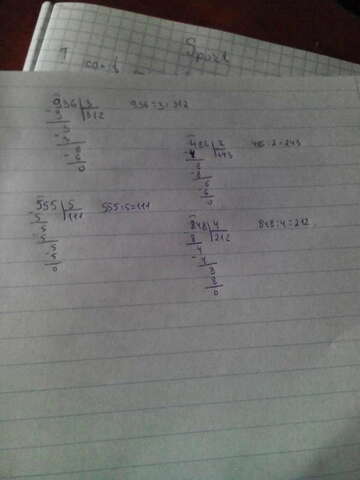 Sport
936 | 3
936:3=312
9 | 312
-3
3
-6
6
0
486 | 2
486:2=243
-4 | 243
8
-8
6
-6
0
555 | 5
555:5=111
-5 | 111
5
-5
5
-5
0
848 | 4
848:4=212
8 | 212
4
-4
8
8
0